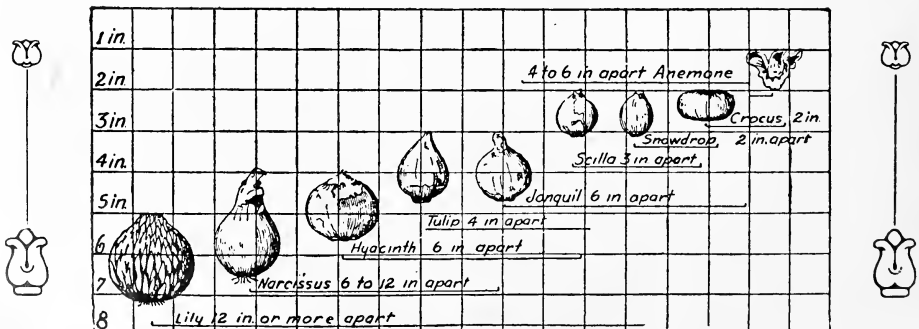 1 in.
2 in.
4 to 6 in apart Anemone
3 in.
Crocus, 2 in.
Snowdrop, 2 in. apart
Scilla 3 in apart
4 in.
5 in.
Jonquil 6 in apart
Tulip 4 in apart
6
Hyacinth 6 in apart
7
Narcissus 6 to 12 in apart
8
Lily 12 in. or more apart